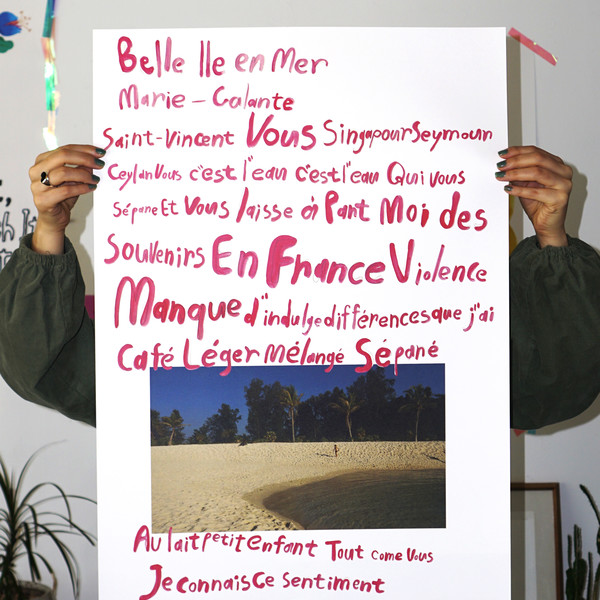 Belle Ile en Mer
Marie - Galante
Saint-Vincent Vous Singapour Seymour
Ceylan Vous c'est l'eau c'est l'eau Qui vous
Sépare Et Vous laisse à Part Moi des
Souvenirs En France Violence
Manque d'indulge différences que j'ai
Café Léger Mélangé Séparé
Au lait petit enfant Tout come Vous
Je connais Ce sentiment